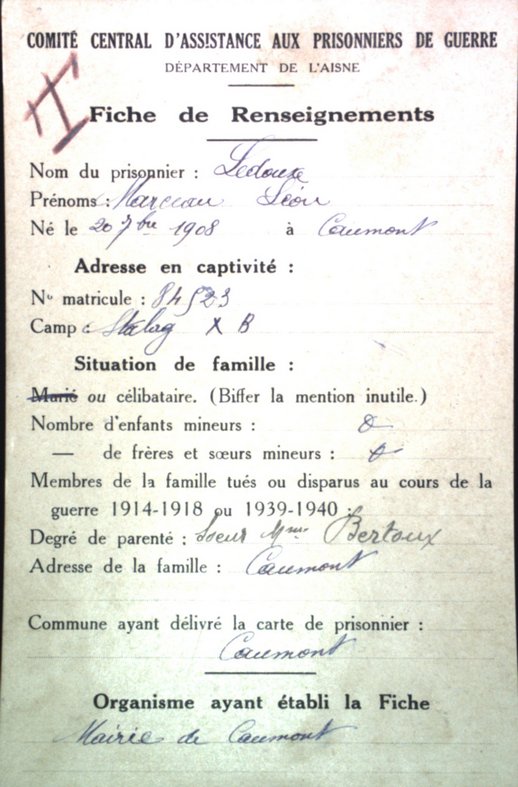 COMITÉ CENTRAL D'ASSISTANCE AUX PRISONNIERS DE GUERRE
DÉPARTEMENT DE L'AISNE
Fiche de Renseignements
Nom du prisonnier : Ledoux
Prénoms : Marceau Léon
Né le 20 7bre 1908 à Caumont
Adresse en captivité :
No matricule : 84523
Camp : Stalag X B
Situation de famille :
Marié ou célibataire. (Biffer la mention inutile.)
Nombre d'enfants mineurs : 0
— de frères et sœurs mineurs : 0
Membres de la famille tués ou disparus au cours de la
guerre 1914-1918 ou 1939-1940 :
Degré de parenté : Soeur Mme Bertoux
Adresse de la famille : Caumont
Commune ayant délivré la carte de prisonnier :
Caumont
Organisme ayant établi la Fiche
Mairie de Caumont